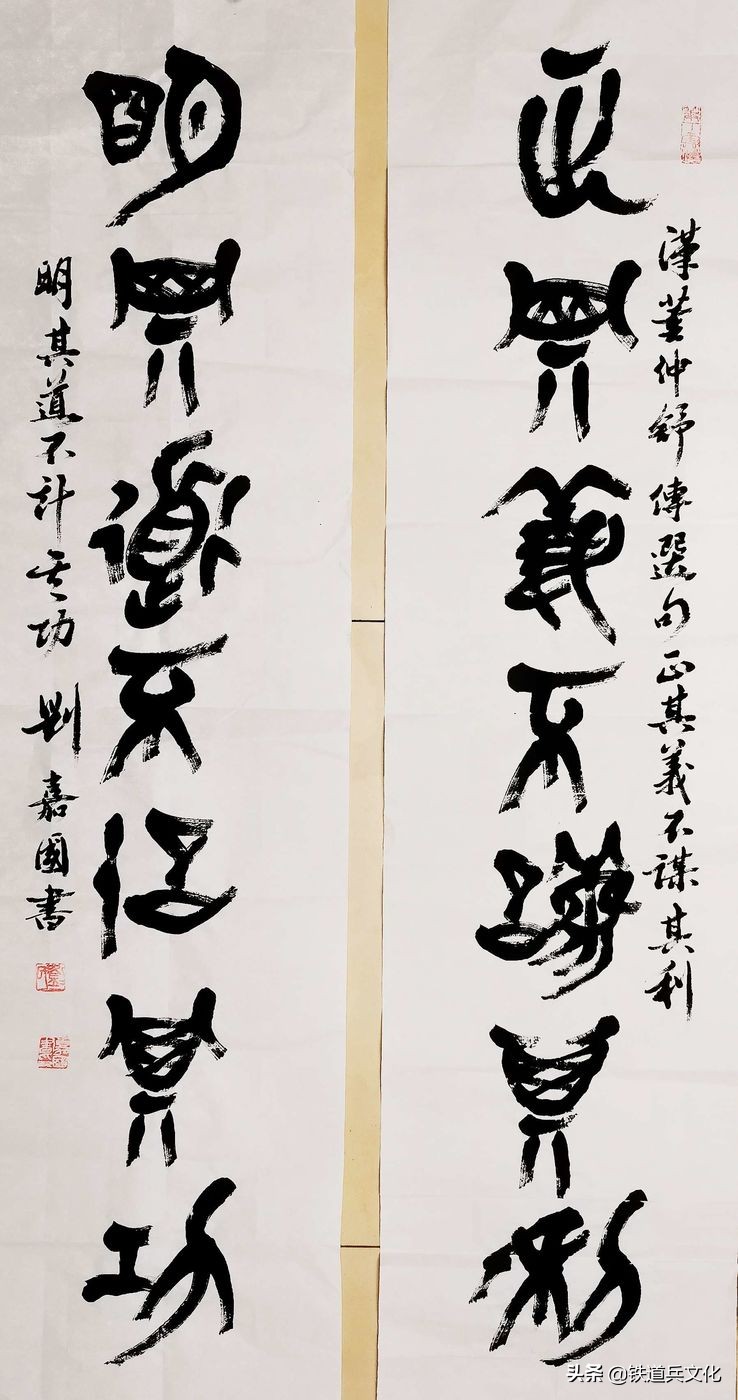 正其義不謀其利
漢董仲舒傳選句正其義不謀其利
明其道不計其功
明其道不計其功 劉嘉國書
头条 @铁道兵文化